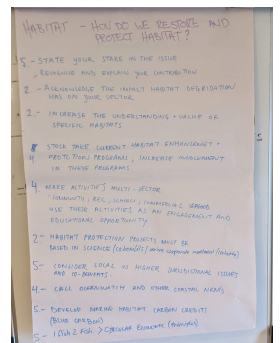 HABITAT - HOW DO WE RESTORE AND
PROTECT HABITAT?
5 - STATE YOUR STAKE IN THE ISSUE
- RECOGNIZE AND EXPLAIN YOUR CONTRIBUTION
2 - ACKNOWLEDGE THE IMPACT HABITAT DEGRIDATION
HAS ON YOUR SECTOR
2 - INCREASE THE UNDERSTANDING + VALUE OF
SPECIFIC HABITATS
STOCK TAKE CURRENT HABITAT ENHANCEMENT +
4 PROTECTION PROGRAMS, INCREASE INVOLVEMENT
IN THESE PROGRAMS
4. MAKE ACTIVITIES MULTI-SECTOR
COMMUNITY, REC, SCHOOL, COMMERCIAL
USE THESE ACTIVITIES AS AN ENGAGEMENT AND
EDUCATIONAL OPPORTUNITY
2 - HABITAT PROTECTION PROJECTS MUST BE
BASED IN SCIENCE
5 - CONSIDER LOCAL VS HIGHER JURISDICTIONAL ISSUES
AND CO-BENEFITS.
4 - CALL OCEANWATCH AND OTHER COASTAL NRMS
5 - DEVELOP MARINE HABITAT CARBON CREDITS
(BLUE CARBON)
5 - CIRCULAR ECONOMIC